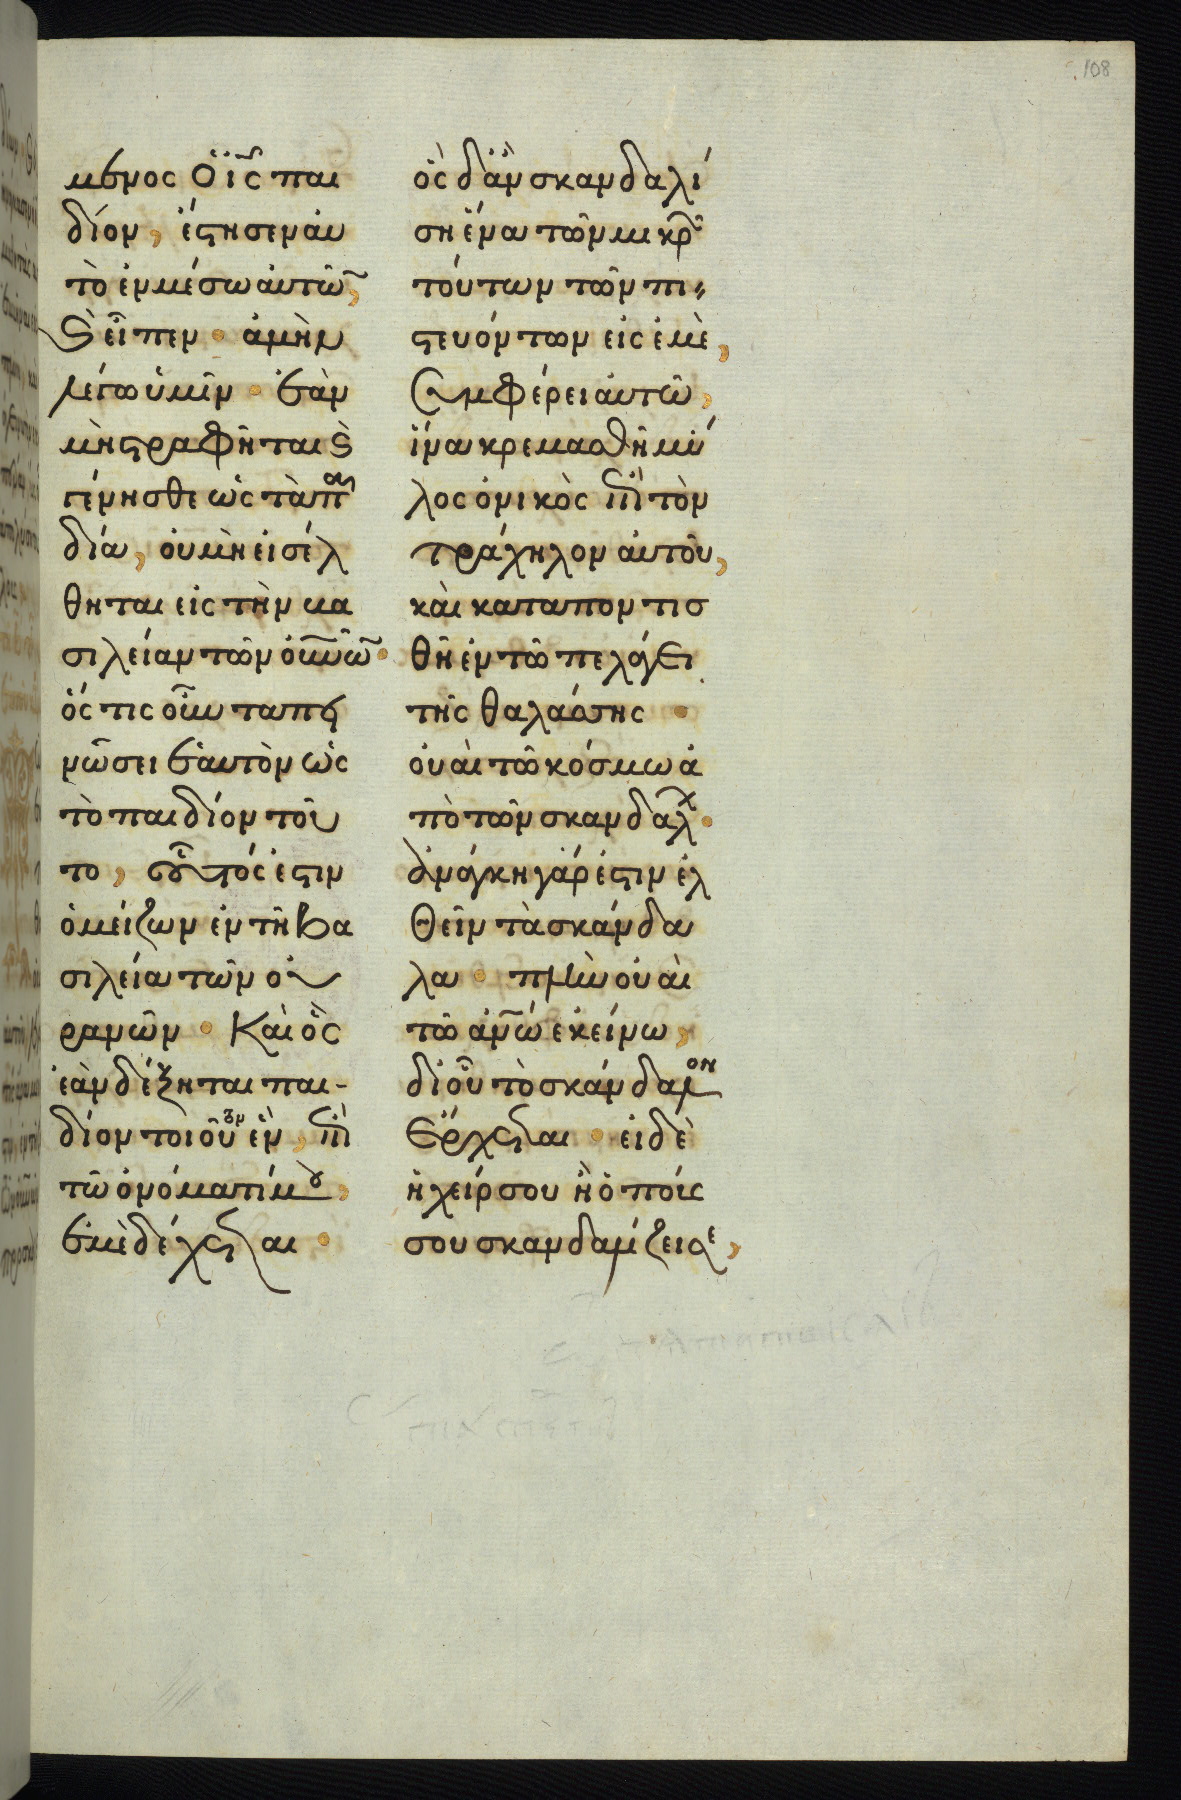 108
μενος ὁ ἰς παι
δίον, ἔστησεν αυ
τὸ ἐν μέσω αὐτῶ,
καὶ εἶπεν · ἀμὴν
λέγω ὑμῖν · ἐὰν
μὴ στραφῆται καὶ
γένησθε ὡς τὰ παι
δία, οὐ μὴ εἰσέλ
θηται εἰς τὴν βα
σιλείαν τῶν οὐνῶ ·
ὅς τις οὖν ταπει
νώσει ἑαυτὸν ὡς
τὸ παιδίον τοῦ
το, οὗτός ἐστιν
ὁ μείζων ἐν τῆ βα
σιλεία τῶν οὐ
ρανῶν · Καὶ ὃς
ἐὰν δέξηται παι-
δίον τοιοῦτον ἓν, ἐπὶ
τῶ ὀνόματί μου,
ἐμὲ δέχεται ·
ὃς δ' ἂν σκανδαλί
ση ἕνα τῶν μικρῶ
τούτων τῶν πι
στευόντων εἰς ἐμὲ,
συμφέρει αὐτῶ,
ἵνα κρεμασθῆ μύ
λος ὀνικὸς ἐπὶ τὸν
τράχηλον αὐτοῦ,
καὶ καταποντισ
θῆ ἐν τῶ πελάγει
τῆς θαλάσσης ·
οὐαὶ τῶ κόσμω ἀ
πὸ τῶν σκανδαλ ·
ἀνάγκη γάρ ἐστιν ἐλ
θεῖν τὰ σκάνδα
λα · πλὴν οὐαὶ
τῶ ἀνῶ ἐκείνω,
δι' οὗ τὸ σκάνδαλον
ἔρχεται · εἰ δὲ
ἡ χείρ σου ἢ ὁ ποῦς
σου σκανδαλίζει σε,